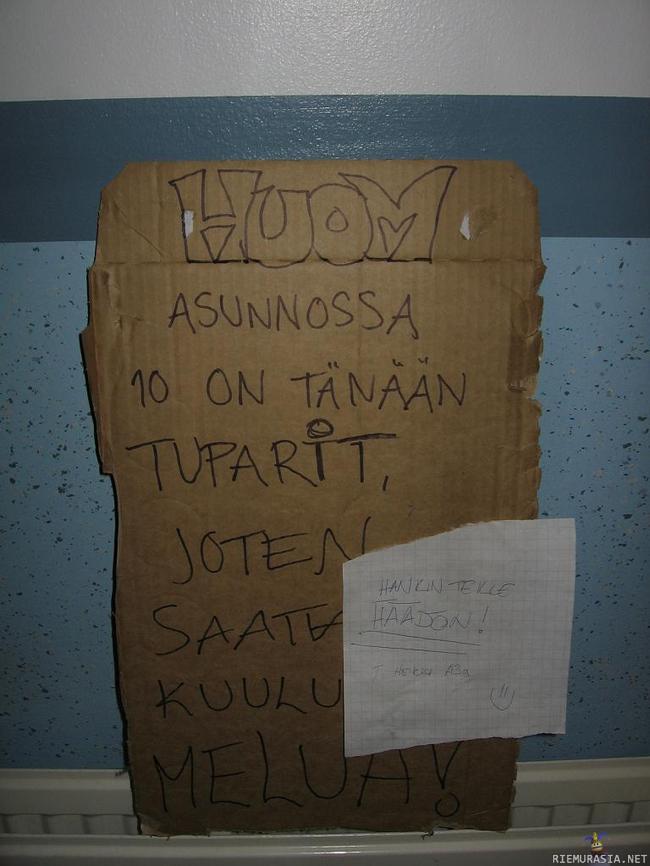 HUOM
ASUNNOSSA
10 ON TÄNÄÄN
TUPARIT,
JOTEN
SAATA
KUULU
MELUA!
HANKIN TEILLE
HÄÄDÖN!
T. A39
RIEMURASIA.NET